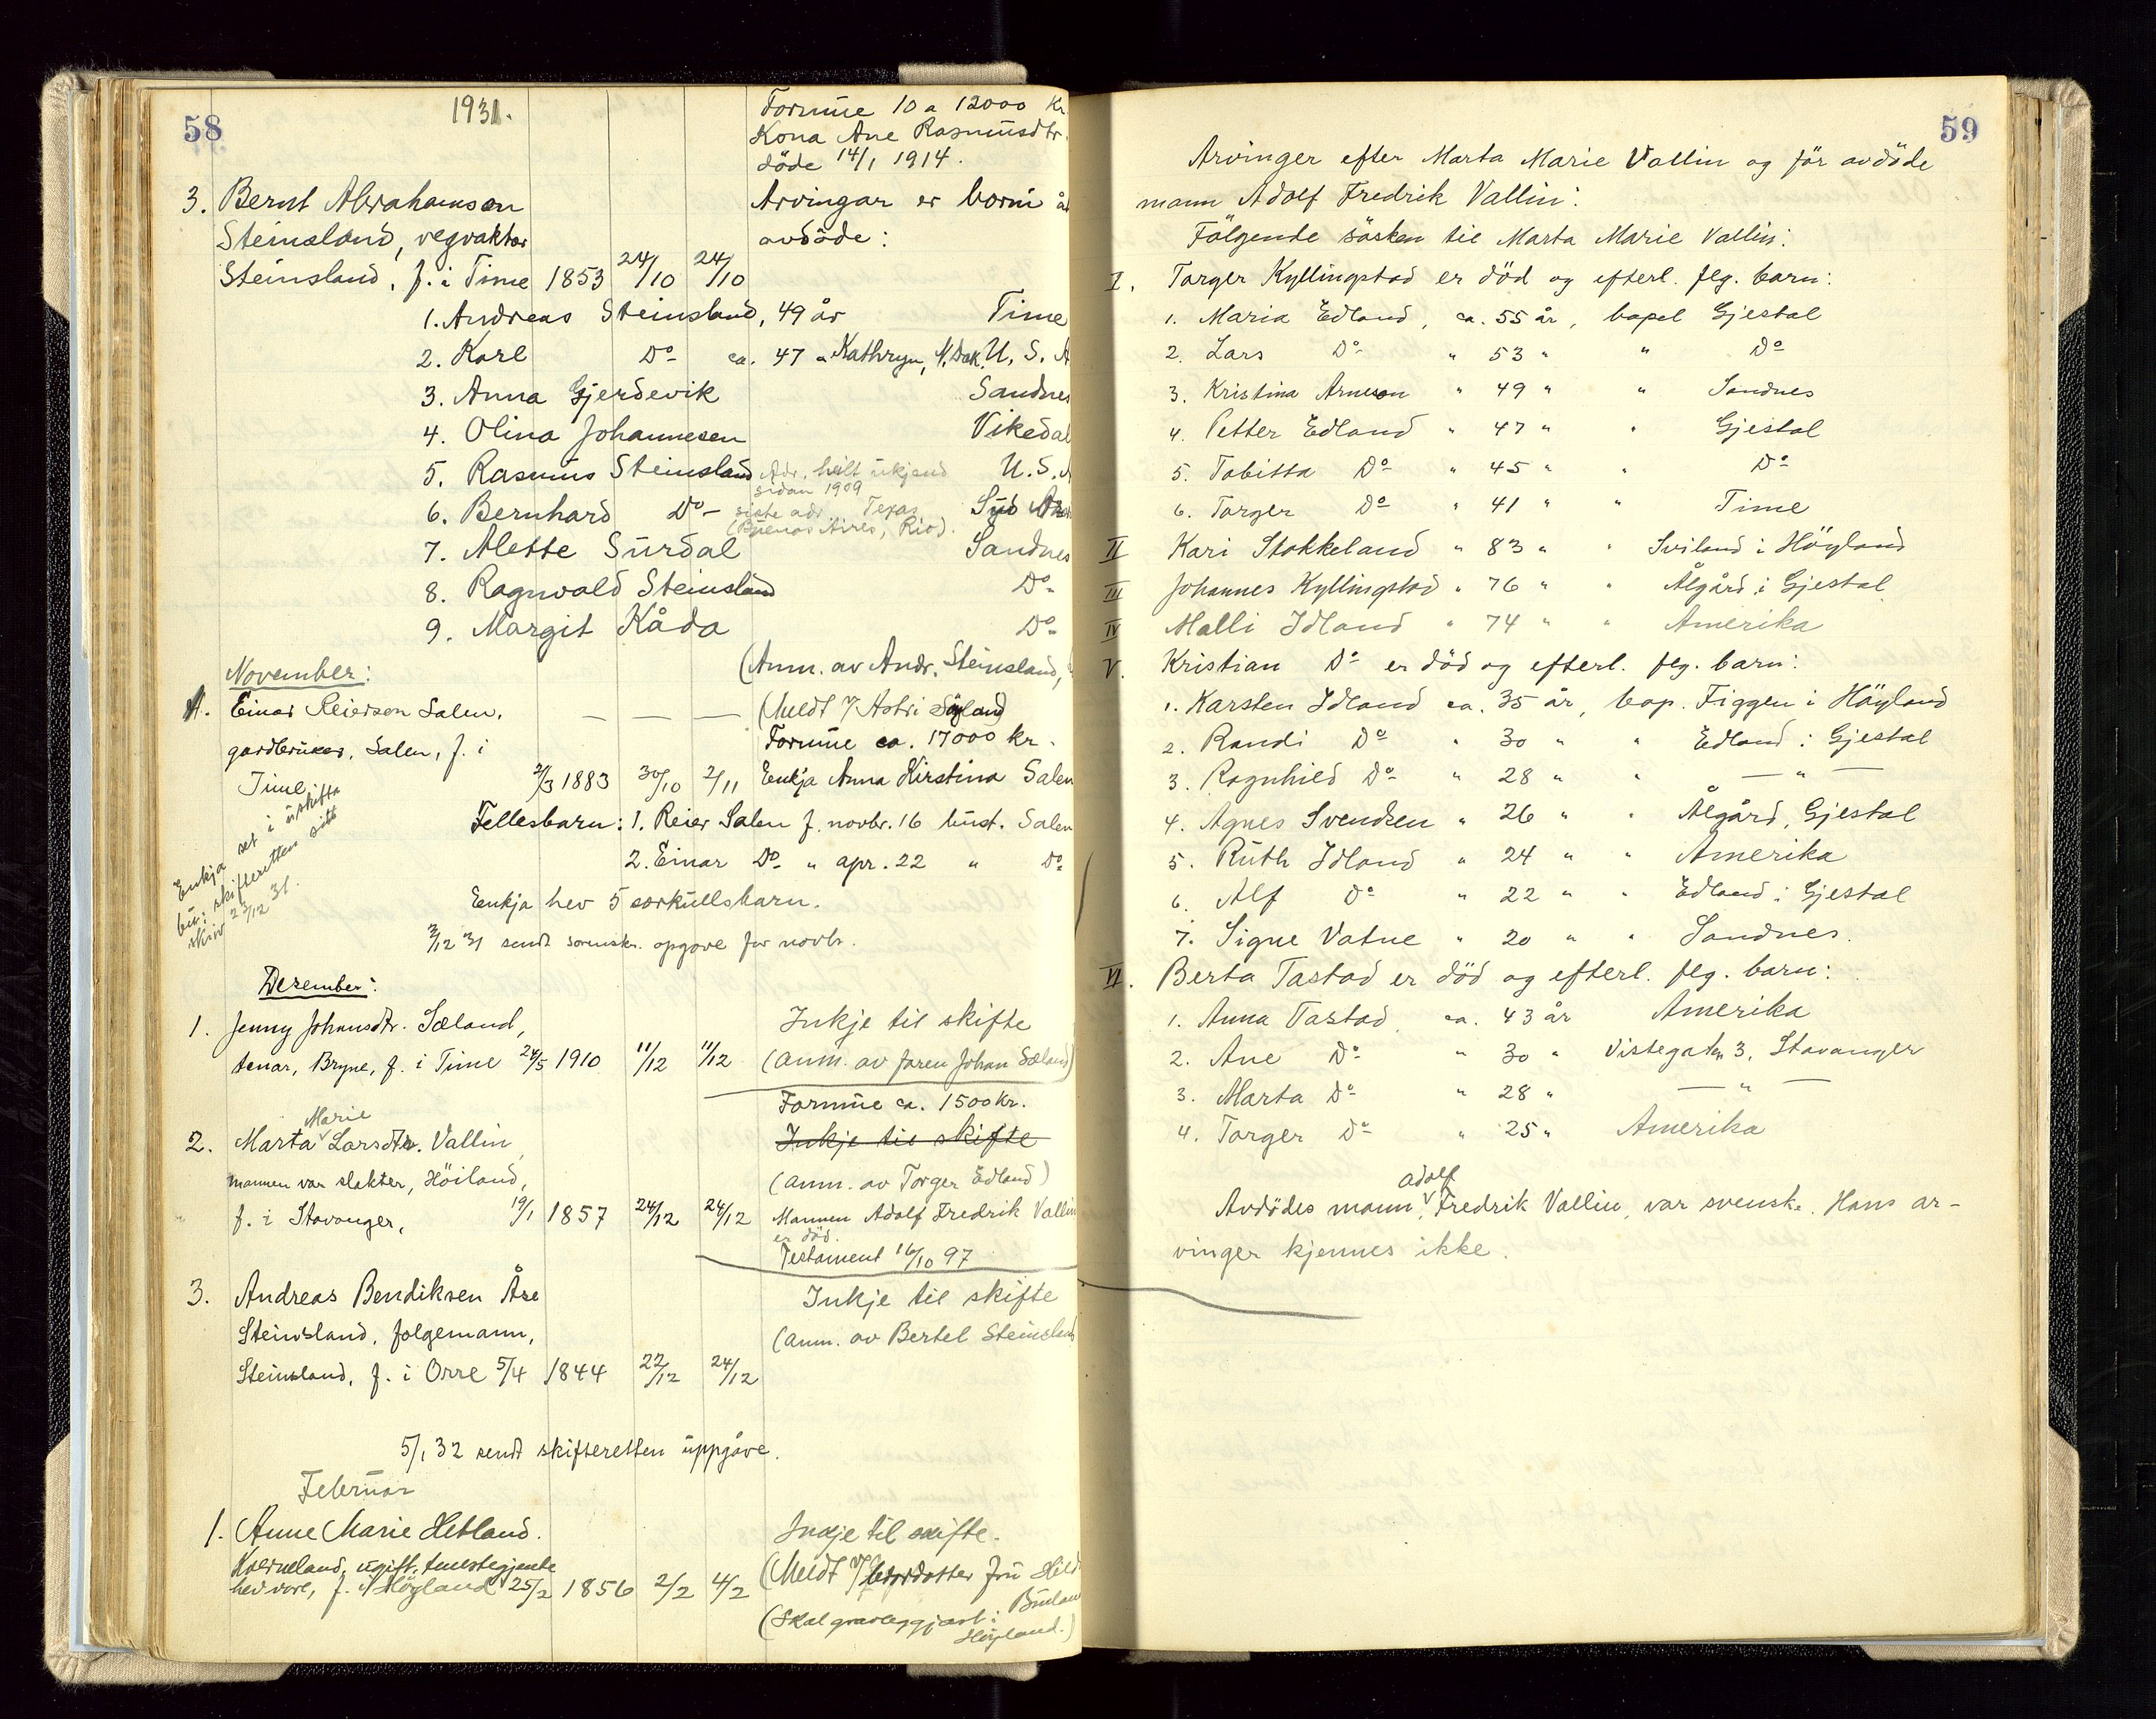 58
1931.
Formue 10 a 12000 Kr.
Kona Ane Rasmusdtr.
döde 14/1 1914.
3. Bernt Abrahamsen
Steinsland, vegvaktar
Steinsland, f. i Time 1853 24/10 24/10
Arvingar er born åt
avdöde:
1. Andreas Steinsland, 49 år Time
2. Karl Do ca. 47 " Kathryn, N. Dak. U. S. A
3. Anna Gjerdevik Sandnes
4. Olina Johannesen Vikedal
5. Rasmus Steinsland Adr. heilt ukjend sidan 1909 U. S. A
6. Bernhard Do siste adr. Texas (Buenos Aires, Rio). Syd Am
7. Alette Surdal Sandnes
8. Ragnvald Steinsland Do
9. Margit Kåda Do
(Anm. av Andr. Steinsland,
November:
1. Einar Reierson Salen, — — — (Meldt v/ Astri
gardbrukar, Salen, f. i Formue ca. 17000 kr.
Time 2/3 1883 30/10 2/11 Enkja Anna Kirstina Salen
Fellesbarn: 1. Reier Salen f. novbr. 16 hust. Salen
2. Einar Do " apr. 22 " Do
Enkja set i uskifta
bu: skifteretten sitt
skriv 23/12 31.
Enkja hev 5 særkullsbarn.
3/12 31 sendt sorenskr. opgave for novbr.
Desember:
1. Jenny Johansdtr. Sæland, Inkje til skifte
tenar, Bryne, f. i Time 24/5 1910 11/12 11/12 (anm. av faren Johan Sæland)
Formue ca. 1500 kr.
Marie
2. Marta Larsdtr. Vallin, Inkje til skifte
mannen var slakter, Höiland, (anm. av Torger Edland)
f. i Stavanger, 19/1 1857 24/12 24/12 Mannen Adolf Fredrik Vallin
er död.
Testament 16/10 97
3. Andreas Bendiksen Åse Inkje til skifte
Steinsland, folgemann, (anm. av Bertel Steinsland
Steinsland, f. i Orre 5/4 1844 22/12 24/12
5/1 32 sendt skifteretten uppgåve.
Februar
1. Anne Marie Hetland. Inkje til skifte.
Kverneland, ugift, tenestegjente (Meldt v/ brordotter fru Hild
hev vore, f. i Høgland 25/2 1856 2/2 4/2
(Skal gravleggjast i
Høyland.)
59
Arvinger efter Marta Marie Vallin og för avdöde
mann Adolf Fredrik Vallin:
Fölgende sösken til Marta Marie Vallin:
I. Torger Kyllingstad er död og efterl. flg. barn:
1. Maria Edland, ca. 55 år, bopel Gjestal
2. Lars Do " 53 " " Do
3. Kristina Arneson " 49 " " Sandnes
4. Petter Edland " 47 " " Gjestal
5. Tobitta Do " 45 " " Do
6. Torger Do " 41 " " Time
II Kari Stokkeland " 83 " " Sviland i Höyland
III Johannes Kyllingstad " 76 " " Ålgård i Gjestal
IV Malli Idland " 74 " " Amerika
V. Kristian Do er död og efterl. flg. barn:
1. Karsten Idland ca. 35 år, bop. Figgen i Höyland
2. Randi Do " 30 " " Edland i Gjestal
3. Ragnhild Do " 28 " " — " —
4. Agnes Svendsen " 26 " " Ålgård, Gjestal
5. Ruth Idland " 24 " " Amerika
6. Alf Do " 22 " " Edland i Gjestal
7. Signe Vatne " 20 " " Sandnes.
VI. Berta Tastad er död og efterl. flg. barn:
1. Anna Tastad, ca. 43 år Amerika
2. Ane Do " 30 " Vistegaten 3, Stavanger
3. Marta Do " 28 " — " —
4. Torger Do " 25 " Amerika
adolf
Avdödes mann, Fredrik Vallin, var svenske. Hans ar-
vinger kjennes ikke.